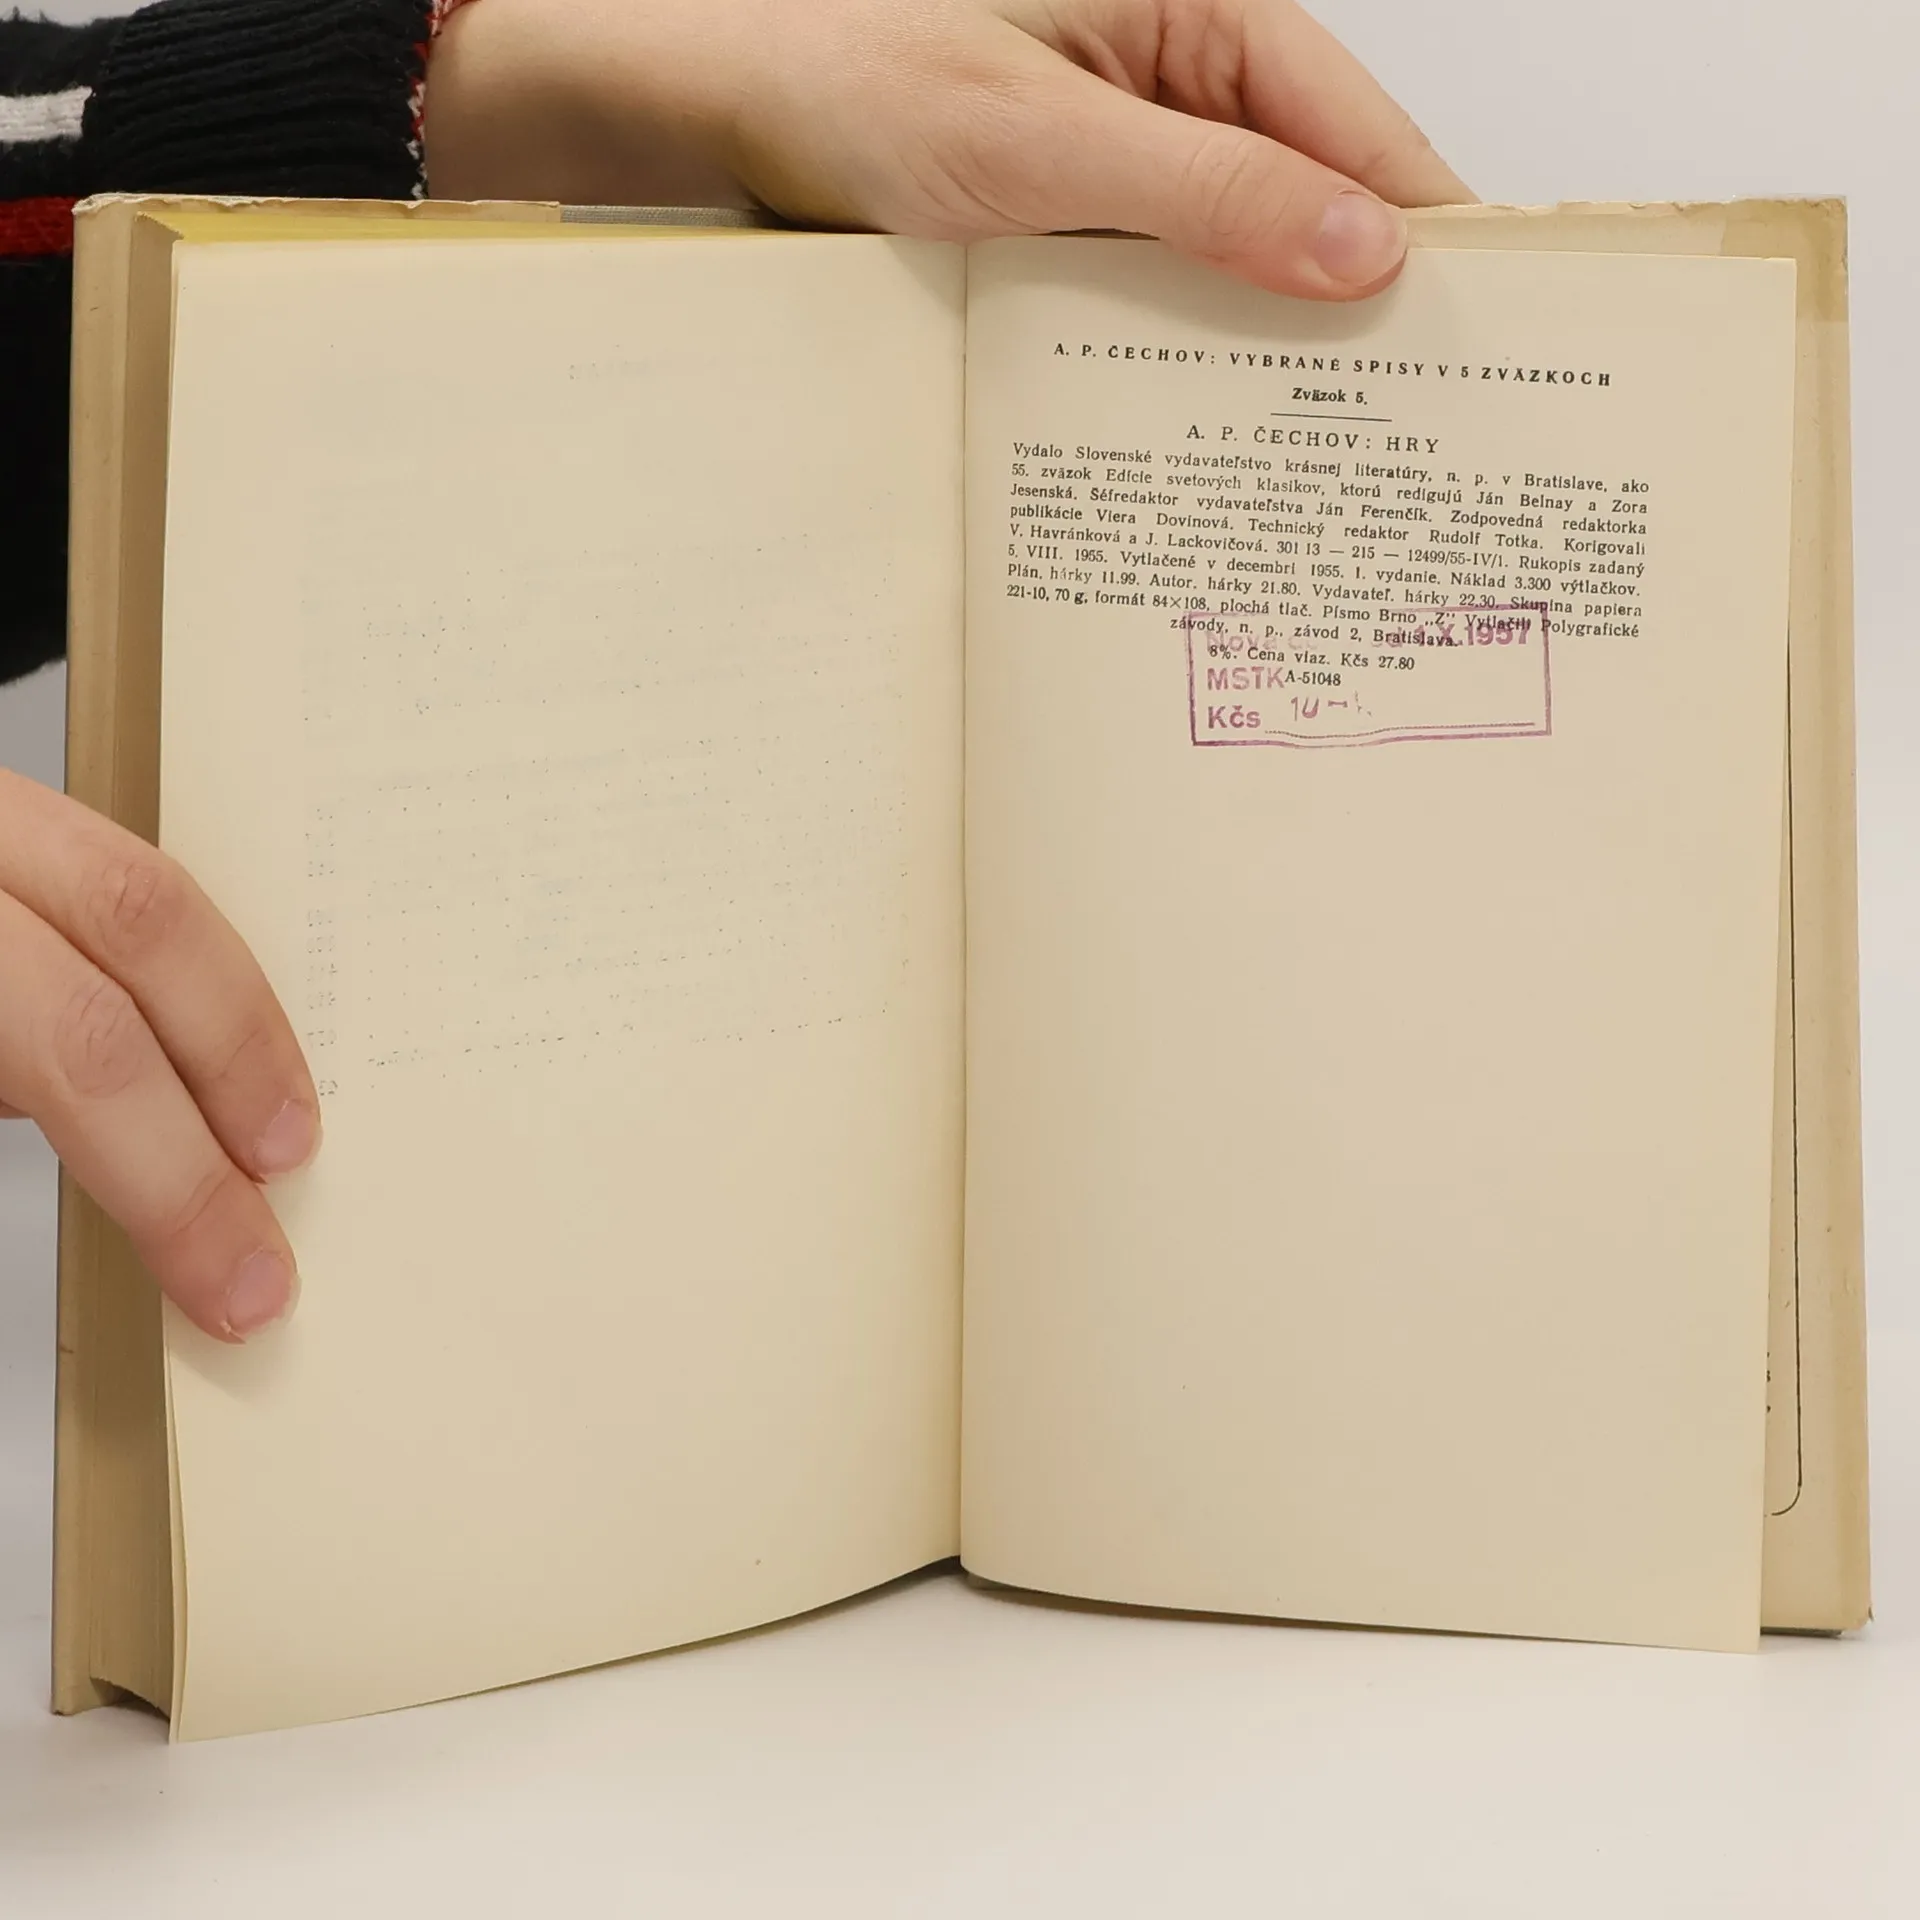 A. P. ČECHOV: VYBRANÉ SPISY V 5 ZVÄZKOCH
Zväzok 5.
A. P. ČECHOV: HRY
Vydalo Slovenské vydavateľstvo krásnej literatúry, n. p. v Bratislave, ako
55. zväzok Edície svetových klasikov, ktorú redigujú Ján Belnay a Zora
Jesenská. Šéfredaktor vydavateľstva Ján Ferenčík. Zodpovedná redaktorka
publikácie Viera Dovinová. Technický redaktor Rudolf Totka. Korigovali
V. Havránková a J. Lackovičová. 301 13 — 215 — 12499/55-IV/1. Rukopis zadaný
5. VIII. 1955. Vytlačené v decembri 1955. 1. vydanie. Náklad 3.300 výtlačkov.
Plán. hárky 11.99. Autor. hárky 21.80. Vydavateľ. hárky 22.30. Skupina papiera
221-10, 70 g, formát 84×108, plochá tlač. Písmo Brno „Z". Vytlačili Polygrafické
závody, n. p., závod 2, Bratislava.
Nová od 1.X.1957
8%. Cena viaz. Kčs 27.80
MSTK
A-51048
Kčs 10